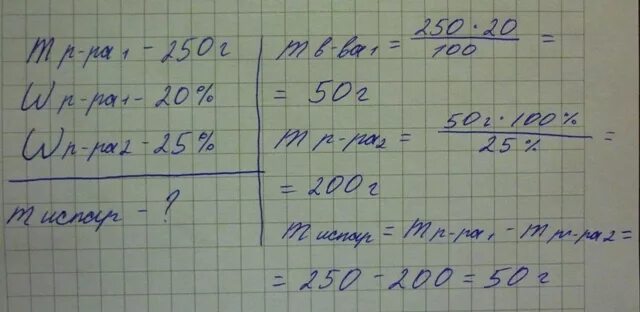 m р-ра₁ - 250г
W р-ра₁ - 20%
W р-ра2 - 25%
m испар - ?
m в-ва₁ = 250 · 20 / 100 =
= 50г
m р-ра₂ = 50г · 100% / 25% =
= 200г
m испар = m р-ра₁ - m р-ра2 =
= 250 - 200 = 50г